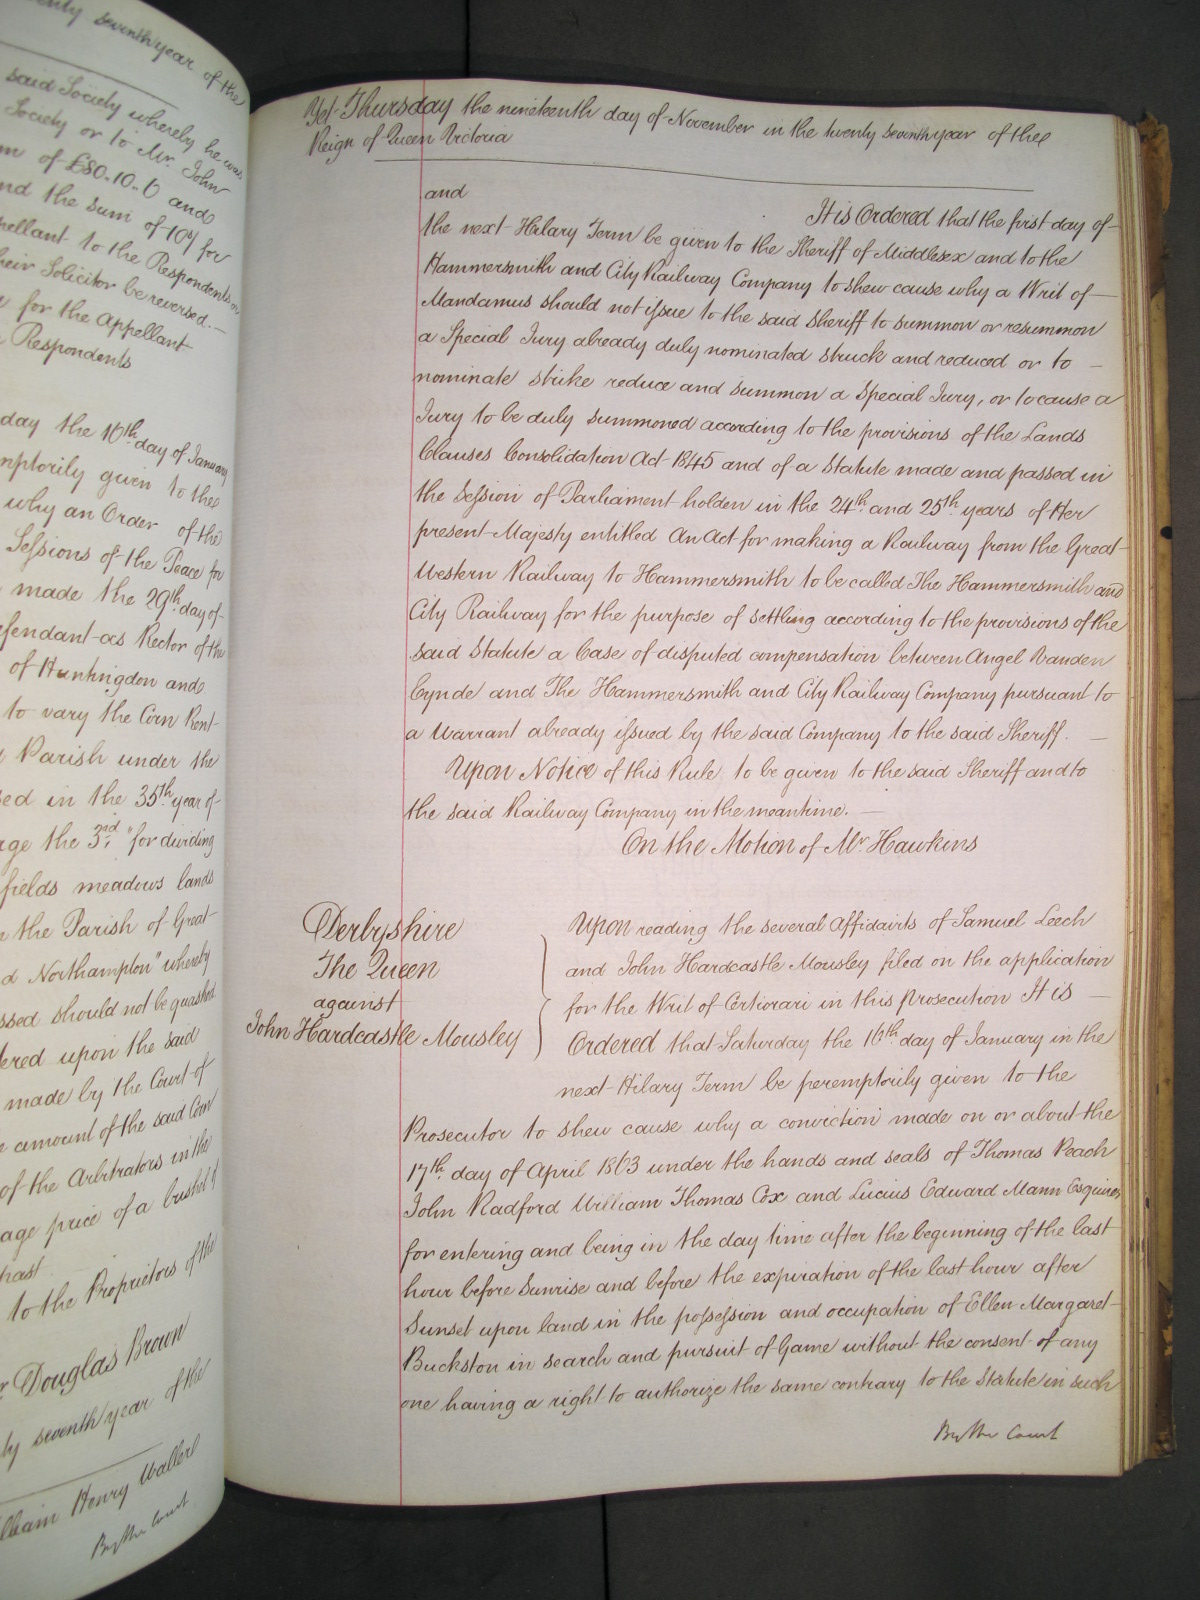 twenty seventh year of the
said Society whereby he was
Society or to Mr. John
of £80.10.6 and
and the sum of 10/ for
Appellant to the Respondents or
their Solicitor be reversed.
for the Appellant
Respondents
day the 16th day of January
peremptorily given to the
why an Order of the
Sessions of the Peace for
made the 29th day of
Defendant as Rector of the
of Huntingdon and
to vary the Corn Rent
Parish under the
in the 35th year of
the 3rd "for dividing
fields meadows lands
the Parish of Great
Northampton" whereby
should not be quashed
upon the said
made by the Court of
amount of the said Corn
of the Arbitrators in the
price of a bushel of
past
to the Proprietors of the
Douglas Brown
seventh year of the
William Henry Waller
By the Court
Yet Thursday the nineteenth day of November in the twenty seventh year of the
Reign of Queen Victoria
and
It is Ordered that the first day of
the next Hilary Term be given to the Sheriff of Middlesex and to the
Hammersmith and City Railway Company to shew cause why a Writ of
Mandamus should not issue to the said Sheriff to summon or resummon
a Special Jury already duly nominated struck and reduced or to
nominate strike reduce and summon a Special Jury, or to cause a
Jury to be duly summoned according to the provisions of the Lands
Clauses Consolidation Act 1845 and of a Statute made and passed in
the Session of Parliament holden in the 24th and 25th years of Her
present Majesty entitled An Act for making a Railway from the Great
Western Railway to Hammersmith to be called The Hammersmith and
City Railway for the purpose of settling according to the provisions of the
said Statute a Case of disputed compensation between Angel Vanden
Cynde and The Hammersmith and City Railway Company pursuant to
a Warrant already issued by the said Company to the said Sheriff.
Upon Notice of this Rule to be given to the said Sheriff and to
the said Railway Company in the meantime.
On the Motion of Mr. Hawkins
Derbyshire
The Queen
against
John Hardcastle Mousley
Upon reading the several Affidavits of Samuel Leech
and John Hardcastle Mousley filed on the application
for the Writ of Certiorari in this prosecution It is
Ordered that Saturday the 16th day of January in the
next Hilary Term be peremptorily given to the
Prosecutor to shew cause why a conviction made on or about the
17th day of April 1863 under the hands and seals of Thomas Peach
John Radford William Thomas Cox and Lucius Edward Mann Esquires
for entering and being in the day time after the beginning of the last
hour before Sunrise and before the expiration of the last hour after
Sunset upon land in the possession and occupation of Ellen Margaret
Buckston in search and pursuit of Game without the consent of any
one having a right to authorize the same contrary to the Statute in such
By the Court